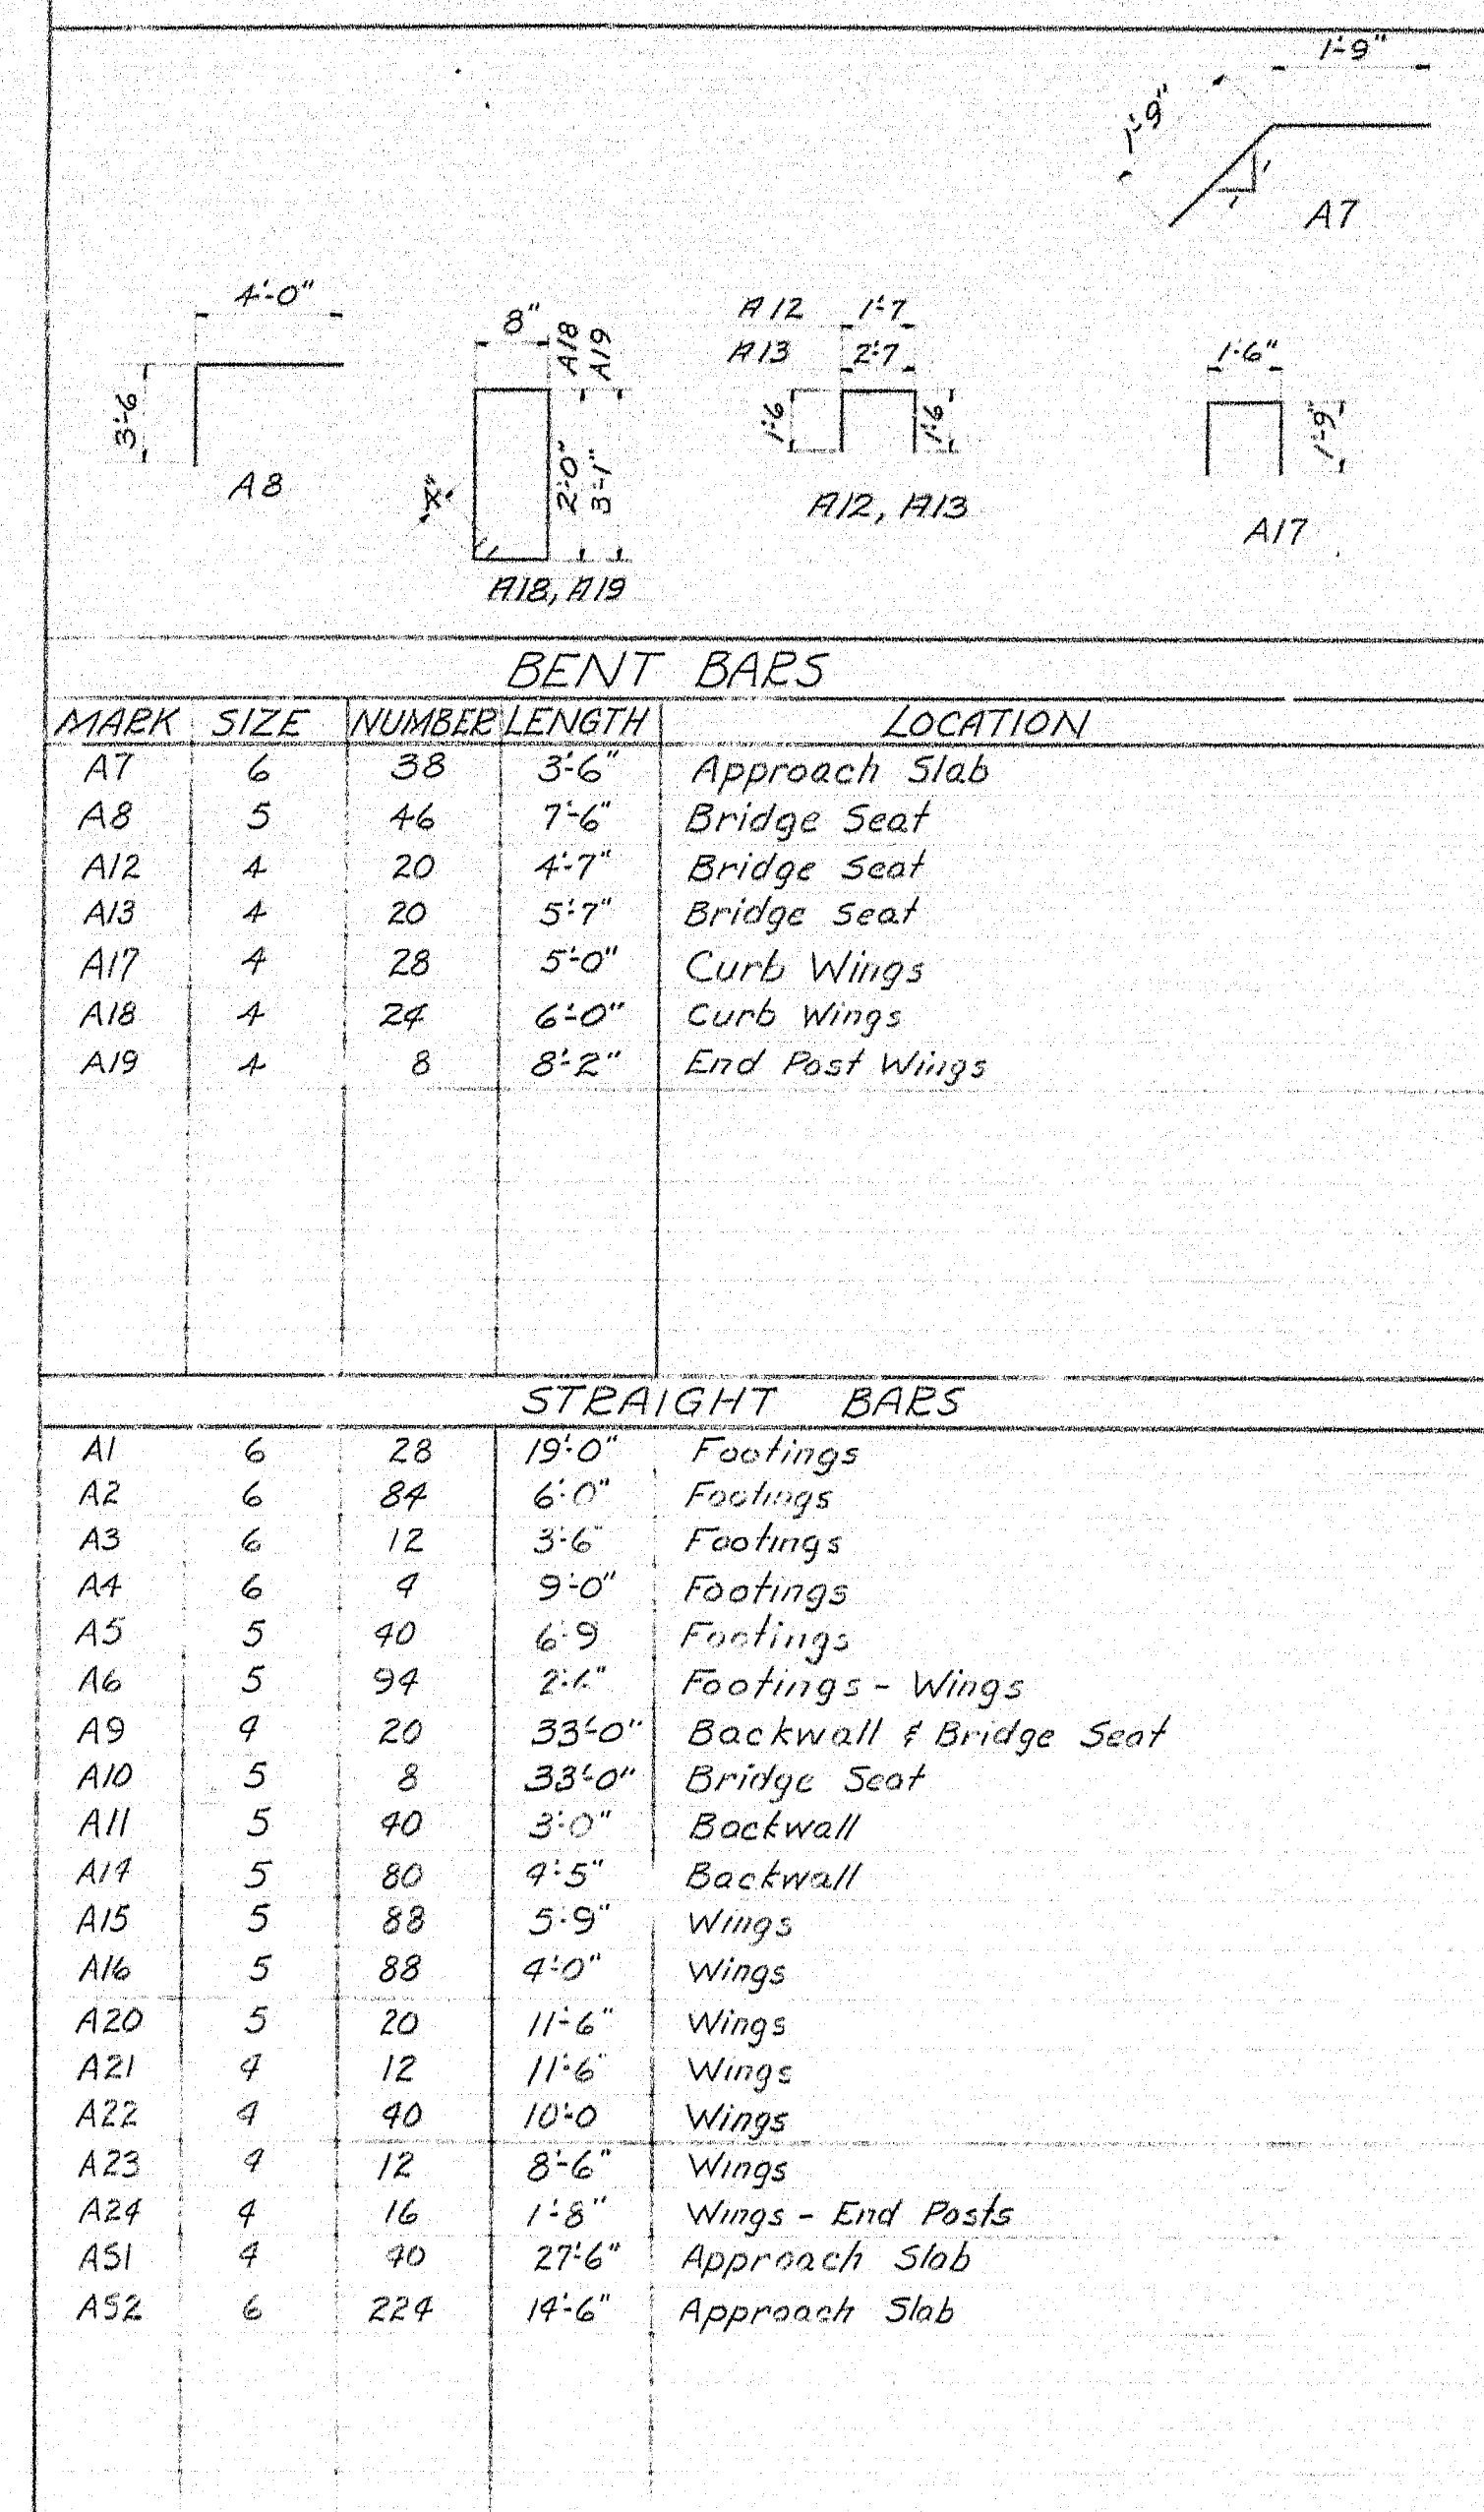 1'-9"
1'-9"
1
1
A7
4'-0"
3'-6
A8
8"
A18
A19
2'-0"
3'-1"
4"
A18, A19
A12 1'-7
A13 2'-7
1'-6
1'-6
A12, A13
1'-6"
1'-9"
A17
BENT BARS
MARK SIZE NUMBER LENGTH LOCATION
A7 6 38 3'-6" Approach Slab
A8 5 46 7'-6" Bridge Seat
A12 4 20 4'-7" Bridge Seat
A13 4 20 5'-7" Bridge Seat
A17 4 28 5'-0" Curb Wings
A18 4 24 6'-0" Curb Wings
A19 4 8 8'-2" End Post Wings
STRAIGHT BARS
A1 6 28 19'-0" Footings
A2 6 84 6'-0" Footings
A3 6 12 3'-6" Footings
A4 6 4 9'-0" Footings
A5 5 40 6'-9 Footings
A6 5 94 Footings - Wings
A9 4 20 33'-0" Backwall & Bridge Seat
A10 5 8 33'-0" Bridge Seat
A11 5 40 3'-0" Backwall
A14 5 80 4'-5" Backwall
A15 5 88 5'-9" Wings
A16 5 88 4'-0" Wings
A20 5 20 11'-6" Wings
A21 4 12 11'-6" Wings
A22 4 40 10'-0 Wings
A23 4 12 8'-6" Wings
A24 4 16 1'-8" Wings - End Posts
AS1 4 40 27'-6" Approach Slab
AS2 6 224 14'-6" Approach Slab